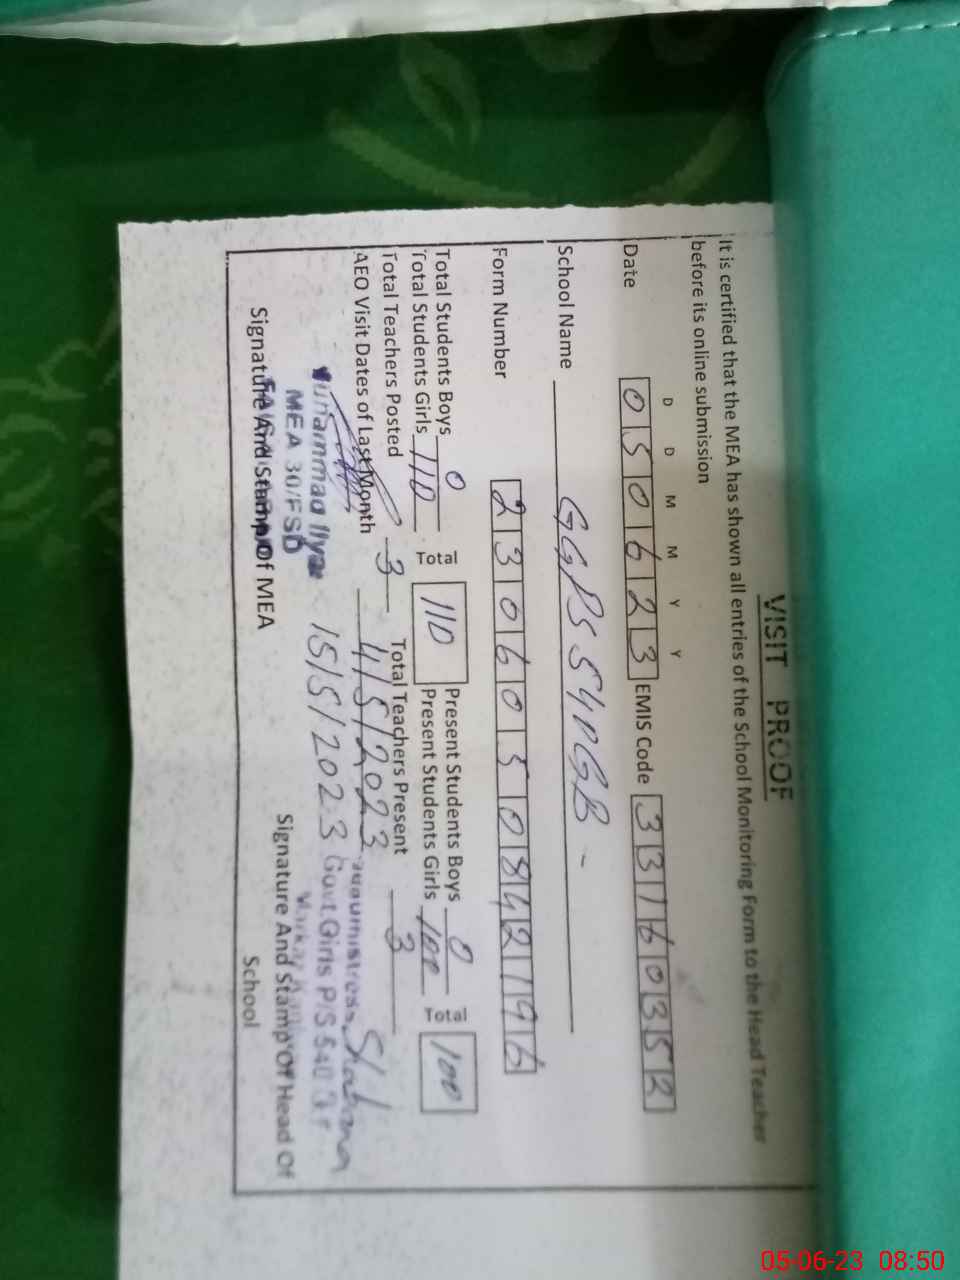 VISIT PROOF
It is certified that the MEA has shown all entries of the School Monitoring Form to the Head Teacher
before its online submission
D D M M Y Y
Date 050623 EMIS Code 33160352
School Name GGPS 540GB -
Form Number 2306050842196
Total Students Boys 0 Present Students Boys 0
Total Students Girls 110 Total 110 Present Students Girls 100 Total 100
Total Teachers Posted 3 Total Teachers Present 3
AEO Visit Dates of Last Month 4/5/2023
15/5/2023
Muhammad Ilyas
MEA 30/FSD
Signature And Stamp Of MEA
Shabana
Govt. Girls P/S 540
Signature And Stamp Of Head Of
School
05-06-23 08:50